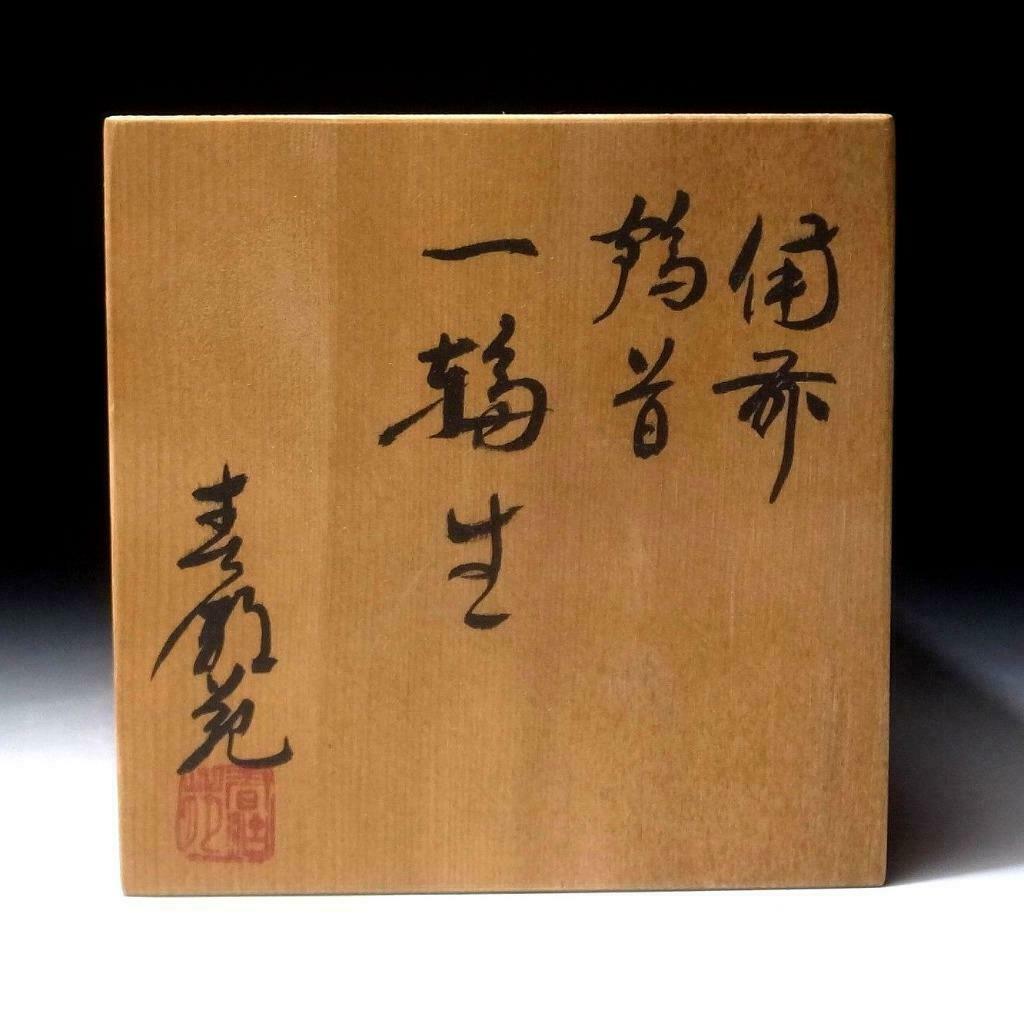 備前
鶴首
一輪生
春殿苑